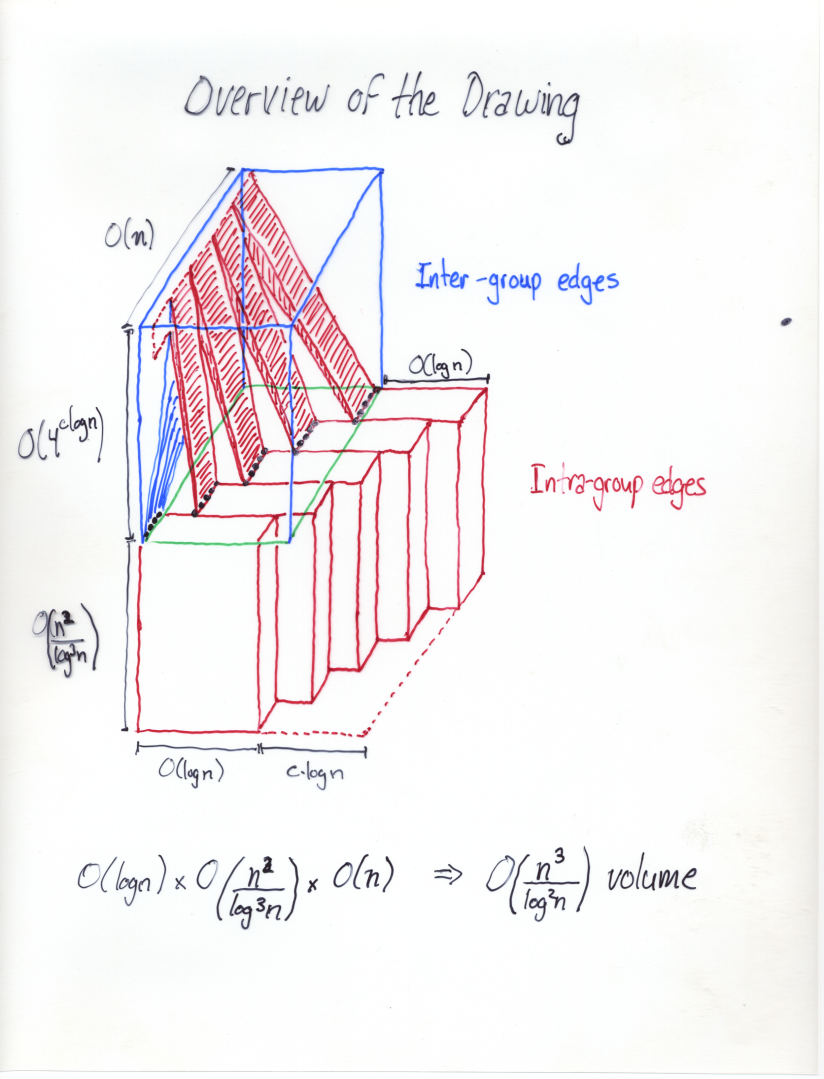 Overview of the Drawing
O(n)
Inter-group edges
O(log n)
O(4^{c log n})
Intra-group edges
O(n²/log³n)
O(log n)
c·log n
O(log n) × O(n²/log³n) × O(n) ⇒ O(n³/log²n) volume